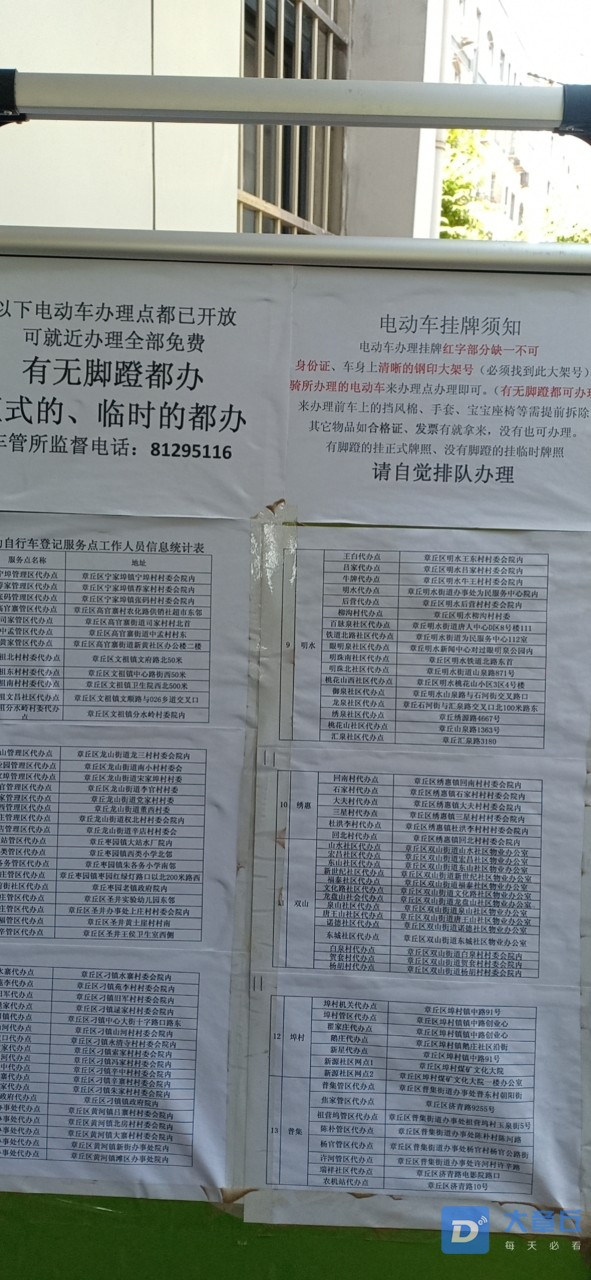 以下电动车办理点都已开放
可就近办理全部免费
有无脚蹬都办
式的、临时的都办
车管所监督电话：81295116
电动车挂牌须知
电动车办理挂牌红字部分缺一不可
身份证、车身上清晰的钢印大架号（必须找到此大架号）
骑所办理的电动车来办理点办理即可。（有无脚蹬都可办理
来办理前车上的挡风棉、手套、宝宝座椅等需提前拆除
其它物品如合格证、发票有就拿来，没有也可办理。
有脚蹬的挂正式牌照、没有脚蹬的挂临时牌照
请自觉排队办理
自行车登记服务点工作人员信息统计表
服务点名称 地址
管理区代办点 章丘区宁家埠镇宁埠村村委会院内
管理区代办点 章丘区宁家埠镇荐家村村委会院内
管理区代办点 章丘区宁家埠镇张码村村委会院内
代办点 章丘区高官寨农化路供销社超市东邻
代办点 章丘区高官寨街道司家村村北首
代办点 章丘区高官寨街道中孟村村东
代办点 章丘区高官寨街道新黄社区办公楼二楼
祖北村村委代办点 章丘区文祖镇文府路北50米
祖东村村委代办点 章丘区文祖镇中心路街西50米
祖南村村委代办点 章丘区文祖镇卫生院西北500米
祖文昌社区代办点 章丘区文祖镇文顺路与026乡道交叉口
祖分水岭村委代办点 章丘区文祖镇分水岭村委院内
管理区代办点 章丘区龙山街道龙三村村委会院内
管理区代办点 章丘区龙山街道南小村村委会
管理区代办点 章丘区龙山街道宋家埠村委会
管理代办点 章丘区龙山街道李官村村委
管理代办点 章丘龙山街道党家村村委
管理代办点 章丘龙山街道董西村委
管理代办点 章丘龙山街道权北村村委会
管理代办点 章丘龙山街道平店村村委会
站管代办点 章丘枣园镇大站水厂院内
管代办点 章丘枣园镇西类小学北邻
务管代办点 章丘枣园镇朱各务小学南邻
庄管代办点 章丘枣园镇枣园红绿灯路口以北200米路西
街社区代办点 章丘枣园老镇政府院内
庄管代办点 章丘区圣井实验幼儿园东邻
庄管代办点 章丘区圣井办事处上庄村村委会院内
管代办点 章丘区圣井黄土崖村村南
管代办点 章丘区圣井王侯卫生室西侧
水寨代办点 章丘区刁镇水寨村委会院内
代办点 章丘区刁镇苑李村村委会院内
旧军代办点 章丘区刁镇旧军村村委会院内
代办点 章丘区刁镇逯家村村委会院内
代办点 章丘区刁镇中心大街十字路口路东
河代办点 章丘区刁镇山河村村委会院内
代办点 章丘区刁镇永清寺村村委会院内
代办点 章丘区刁镇索家村村委会院内
代办点 章丘区刁镇冯家村村委会院内
中代办点 章丘区刁镇王中村村委会院内
寨代办点 章丘区刁镇辛寨村村委会院内
家代办点 章丘区刁镇朱家村村委会院内
政府代办点 章丘区刁镇镇政府院内
办事处代办点 章丘区黄河镇吕寨村村委会院内
办事处代办点 章丘区黄河镇北房村村委会院内
办事处代办点 章丘区黄河镇大寨村村委会院内
办事处代办点 章丘区黄河镇新街办事处院内
办事处代办点 章丘区黄河镇滩区办事处院内
9 明水
王白代办点 章丘区明水王东村村委会院内
吕家代办点 章丘区明水吕家村村委会院内
牛牌代办点 章丘区明水牛王村村委会院内
明水代办点 章丘区明水街道办事处为民服务中心院内
后营代办点 章丘区明水后营村村委会
柳沟村代办点 章丘区明水柳沟村村委
百脉泉社区代办点 章丘明水街道唐人中心D区8号楼111
铁道北路社区代办点 章丘明水街道为民服务中心112室
眼明泉社区代办点 章丘明水新闻中心对过眼明泉公园内
明珠南社区代办点 章丘区明水铁道北路东首
明珠北社区代办点 章丘明水街道山泉路871号
桃花山西社区代办点 章丘区明水桃花山小区3区4号楼
御泉社区代办点 章丘明水山泉路与石河街交叉路口
龙泉社区代办点 章丘石河街与汇泉路交叉口北100米路东
绣泉社区代办点 章丘绣源路4667号
桃花山社区代办点 章丘山泉路1363号
汇泉社区代办点 章丘汇泉路3160
10 绣惠
回南村代办点 章丘区绣惠镇回南村村委会院内
石家村代办点 章丘区绣惠镇石家村村村委会院内
大夫村代办点 章丘区绣惠镇大夫村村委会
三星村代办点 章丘区绣惠镇三星村村村委会院内
杜洪李村代办点 章丘区绣惠镇杜洪李村村村委会院内
回北村代办点 章丘区绣惠镇回北村村委会
双山
山水社区代办点 章丘区双山街道山水社区物业办公室
宏昌社区代办点 章丘区双山街道宏昌社区物业办公室
东山社区代办点 章丘区双山街道东山社区物业办公室
新世纪社区代办点 章丘区双山街道新世纪社区物业办公室
福泰社区代办点 章丘区双山街道福泰社区物业办公室
文化路社区代办点 章丘区双山街道文化路社区物业办公室
龙盘山社会代办点 章丘区双山街道龙盘山社区物业办公室
泉山社区代办点 章丘区双山街道泉山社区物业办公室
唐王山社区代办点 章丘区双山街道唐王山社区物业办公室
诺德社区代办点 章丘区双山街道诺德社区物业办公室
东城社区代办点 章丘区双山街道东城社区物业办公室
白泉村代办点 章丘区双山街道白泉村村委会院内
贺套村代办点 章丘区双山街道贺套村村委会院内
杨胡村代办点 章丘区双山街道杨胡村村委会院内
12 埠村
埠村机关代办点 章丘区埠村镇中路91号
埠村管区代办点 章丘区埠村镇镇中路创业心
翟家庄代办点 章丘区埠村镇镇中路创业心
鹅庄代办点 章丘区埠村镇鹅庄社区沿街
新星代办点 章丘区埠村镇中路91号
新源社区网点1 章丘区埠村煤矿文化大院
新源社区网点2 章丘区埠村煤矿文化大院一楼办公室
13 普集
普集管区代办点 章丘区普集街道办事处普东村朝阳街
焦家管代办点 章丘区济青路9255号
祖营坞管代办点 章丘区普集街道办事处祖营坞村玉泉街5号
陈朴管代办点 章丘区普集街道办事处陈朴村陈河路
杨官管代办点 章丘区普集街道办事处杨官村杨官公路街
许河管代办点 章丘区普集街道办事处许河村许孝路
瑞祥社区代办点 章丘区济青路电影院路口
农机站代办点 章丘区济青路10号
大章丘
每天必看